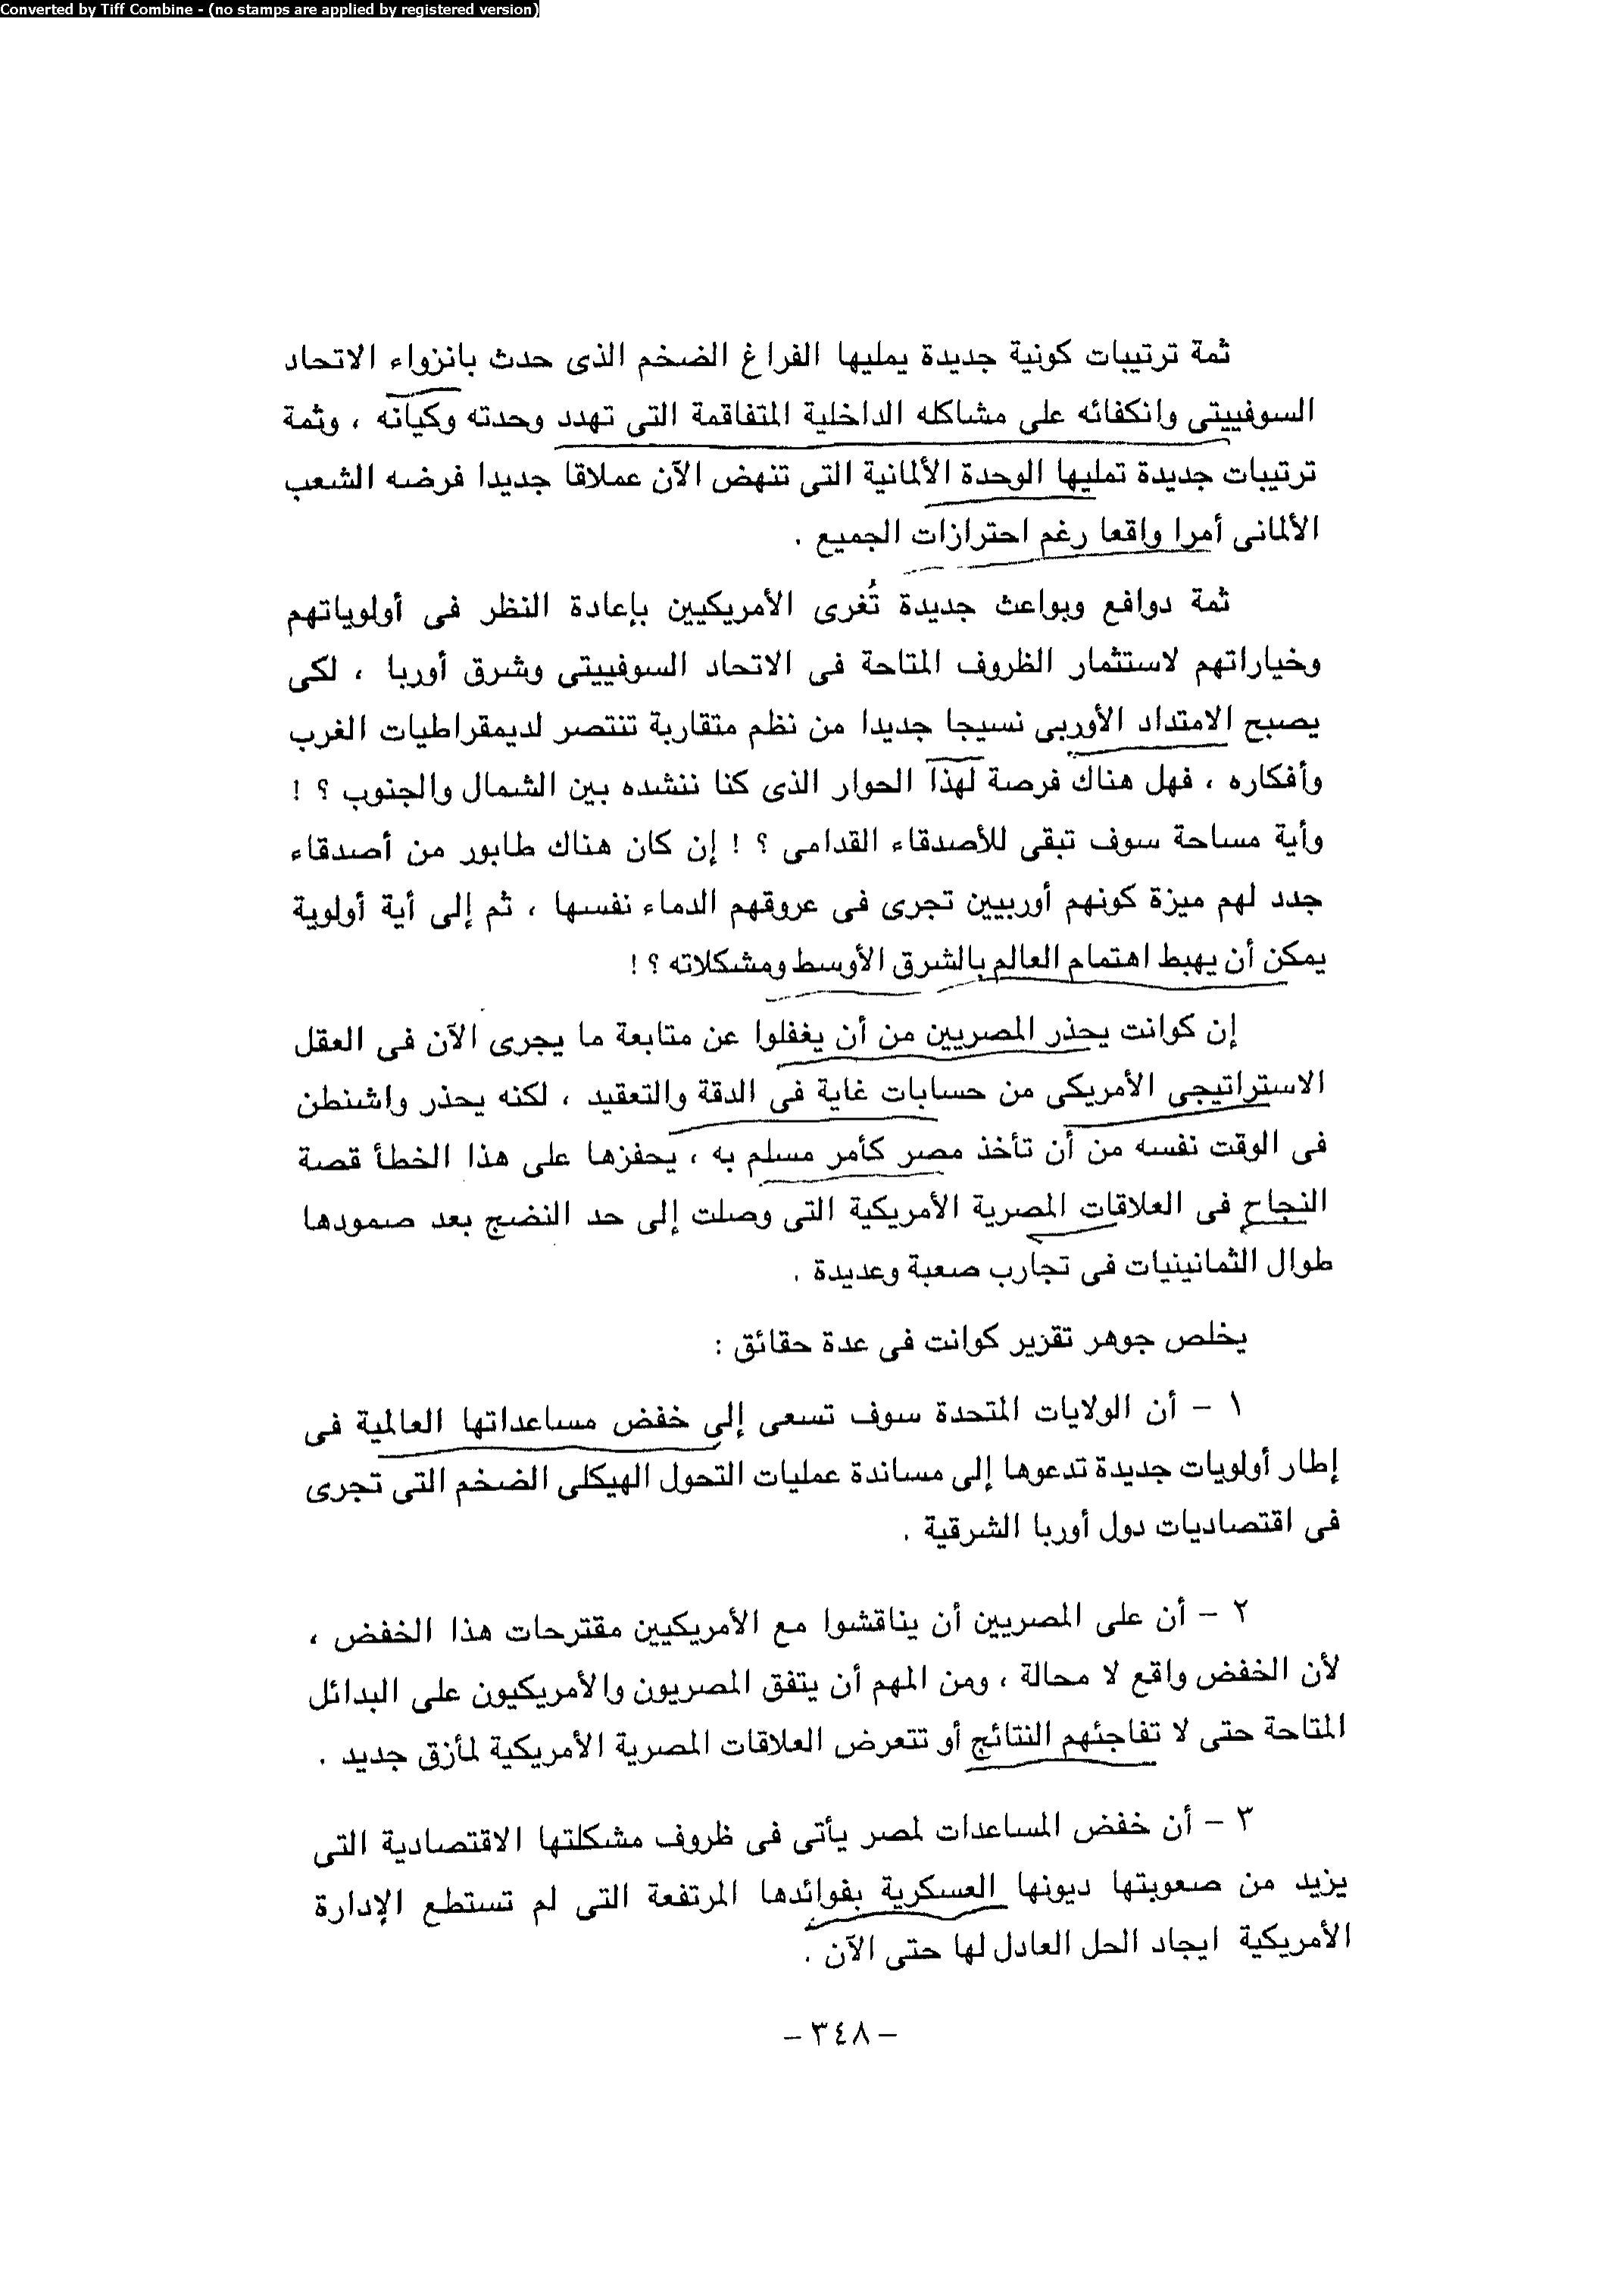 Converted by Tiff Combine - (no stamps are applied by registered version)
ثمة ترتيبات كونية جديدة يمليها الفراغ الضخم الذى حدث بانزواء الاتحاد
السوفييتى وانكفائه على مشاكله الداخلية المتفاقمة التى تهدد وحدته وكيانه ، وثمة
ترتيبات جديدة تمليها الوحدة الألمانية التى تنهض الآن عملاقا جديدا فرضه الشعب
الألمانى أمرا واقعا رغم احترازات الجميع .
ثمة دوافع وبواعث جديدة تُغرى الأمريكيين بإعادة النظر فى أولوياتهم
وخياراتهم لاستثمار الظروف المتاحة فى الاتحاد السوفييتى وشرق أوربا ، لكى
يصبح الامتداد الأوربى نسيجا جديدا من نظم متقاربة تنتصر لديمقراطيات الغرب
وأفكاره ، فهل هناك فرصة لهذا الحوار الذى كنا ننشده بين الشمال والجنوب ؟ !
وأية مساحة سوف تبقى للأصدقاء القدامى ؟ ! إن كان هناك طابور من أصدقاء
جدد لهم ميزة كونهم أوربيين تجرى فى عروقهم الدماء نفسها ، ثم إلى أية أولوية
يمكن أن يهبط اهتمام العالم بالشرق الأوسط ومشكلاته ؟ !
إن كوانت يحذر المصريين من أن يغفلوا عن متابعة ما يجرى الآن فى العقل
الاستراتيجى الأمريكى من حسابات غاية فى الدقة والتعقيد ، لكنه يحذر واشنطن
فى الوقت نفسه من أن تأخذ مصر كأمر مسلم به ، يحفزها على هذا الخطأ قصة
النجاح فى العلاقات المصرية الأمريكية التى وصلت إلى حد النضج بعد صمودها
طوال الثمانينيات فى تجارب صعبة وعديدة .
يخلص جوهر تقرير كوانت فى عدة حقائق :
١ - أن الولايات المتحدة سوف تسعى إلى خفض مساعداتها العالمية فى
إطار أولويات جديدة تدعوها إلى مساندة عمليات التحول الهيكلى الضخم التى تجرى
فى اقتصاديات دول أوربا الشرقية .
٢ - أن على المصريين أن يناقشوا مع الأمريكيين مقترحات هذا الخفض ،
لأن الخفض واقع لا محالة ، ومن المهم أن يتفق المصريون والأمريكيون على البدائل
المتاحة حتى لا تفاجئهم النتائج أو تتعرض العلاقات المصرية الأمريكية لمأزق جديد .
٣ - أن خفض المساعدات لمصر يأتى فى ظروف مشكلتها الاقتصادية التى
يزيد من صعوبتها ديونها العسكرية بفوائدها المرتفعة التى لم تستطع الإدارة
الأمريكية ايجاد الحل العادل لها حتى الآن .
- ٣٤٨ -